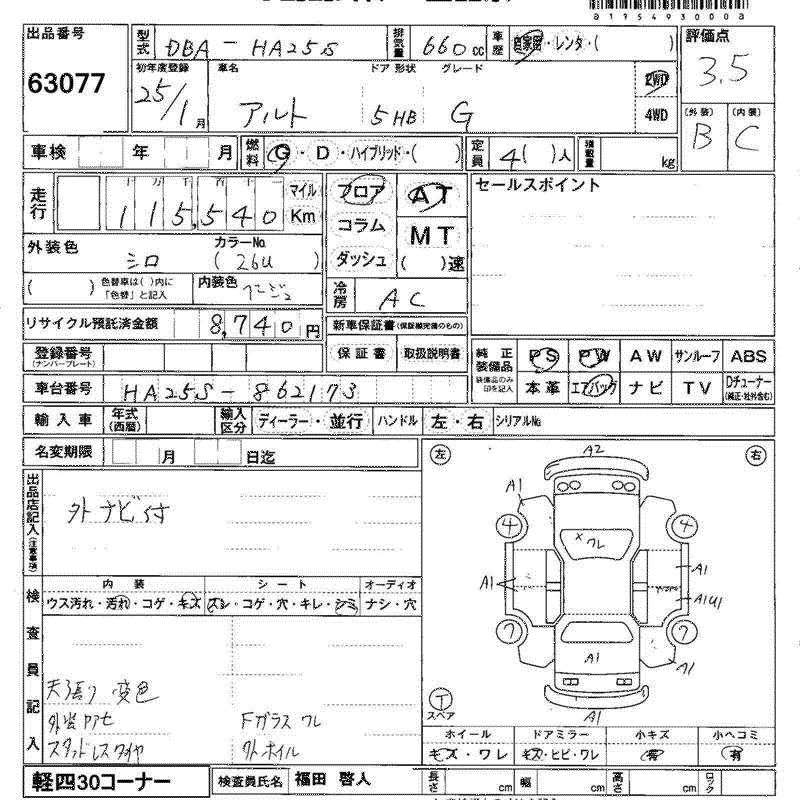 a1154930000a
出品番号
63077
型式 DBA - HA25S
排気量 660 cc
車歴 自家用・レンタ・( )
評価点
3.5
初年度登録 車名 ドア 形状 グレード
25/1月 アルト 5HB G
2WD
4WD
(外装) (内装)
B C
車検 年 月
燃料 G・D・ハイブリッド・( )
定員 4( )人
積載量 kg
走行 十万千百十 マイル
115,540 Km
フロア
コラム
ダッシュ
AT
MT
( )速
セールスポイント
外装色 シロ
カラーNo. ( 26U )
( ) 色替車は( )内に「色替」と記入
内装色
冷房 AC
リサイクル預託済金額 8,740 円
新車保証書(保証継続可能のもの)
保証書 取扱説明書
登録番号
(ナンバープレート)
純正装備品 PS PW AW サンルーフ ABS
装備品のみ印を記入 本革 エアバック ナビ TV Dチューナー
(純正・社外含む)
車台番号 HA25S-862173
輸入車 年式(西暦) 輸入区分 ディーラー・並行 ハンドル 左・右 シリアルNo.
名変期限 月 日迄
左 右
出品店記入(注意事項)
外 ナビ付
A2
A1
4 4
×ワレ
A1 A1
A1U1
7 7
A1 A1
T
スペア
A1
検査員記入
内装 シート オーディオ
ウス汚れ・汚れ・コゲ・キズ スレ・コゲ・穴・キレ・シミ ナシ・穴
天張り 変色
外装
Fガラス ワレ
スタットレスタイヤ
外ホイル
ホイール ドアミラー 小キズ 小ヘコミ
キズ・ワレ キズ・ヒビ・ワレ 有 有
軽四30コーナー
検査員氏名 福田 啓人
長さ cm 幅 cm 高さ cm ロック